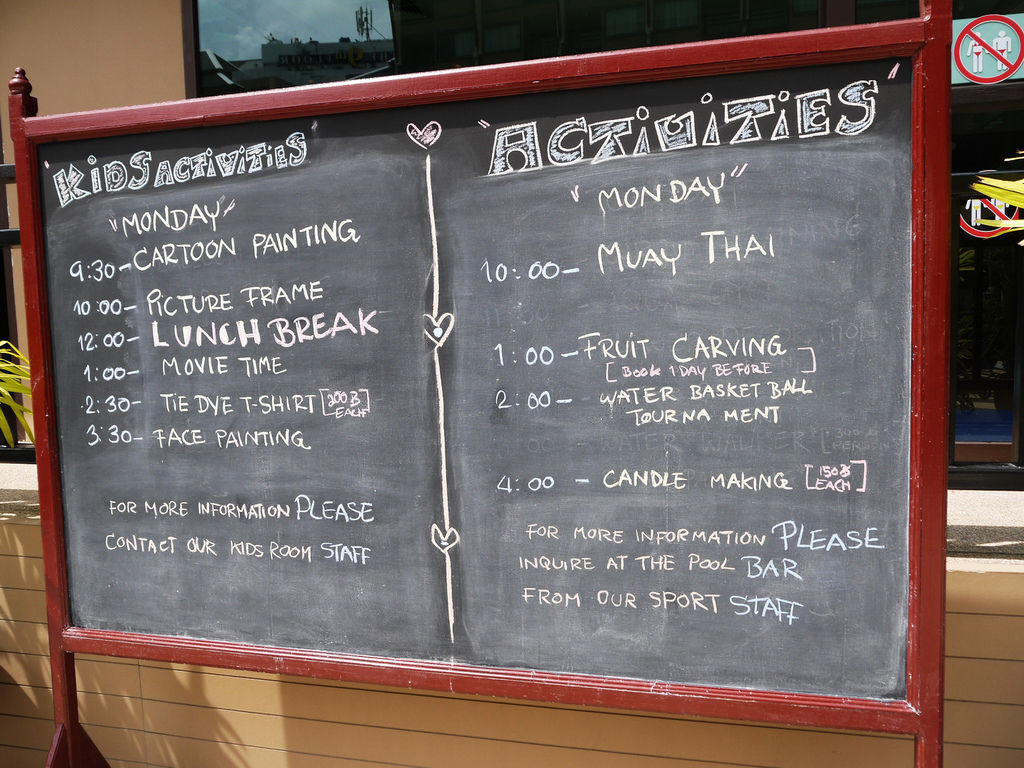 "KIDS ACTIVITIES
"MONDAY"
9:30- CARTOON PAINTING
10:00- PICTURE FRAME
12:00- LUNCH BREAK
1:00- MOVIE TIME
2:30- TIE DYE T-SHIRT [300฿ EACH]
3:30- FACE PAINTING
FOR MORE INFORMATION PLEASE
CONTACT OUR KIDS ROOM STAFF
"ACTIVITIES"
"MONDAY"
10:00- MUAY THAI
1:00- FRUIT CARVING
[BOOK 1 DAY BEFORE]
2:00- WATER BASKET BALL
TOURNA MENT
4:00 - CANDLE MAKING [150฿ EACH]
FOR MORE INFORMATION PLEASE
INQUIRE AT THE POOL BAR
FROM OUR SPORT STAFF